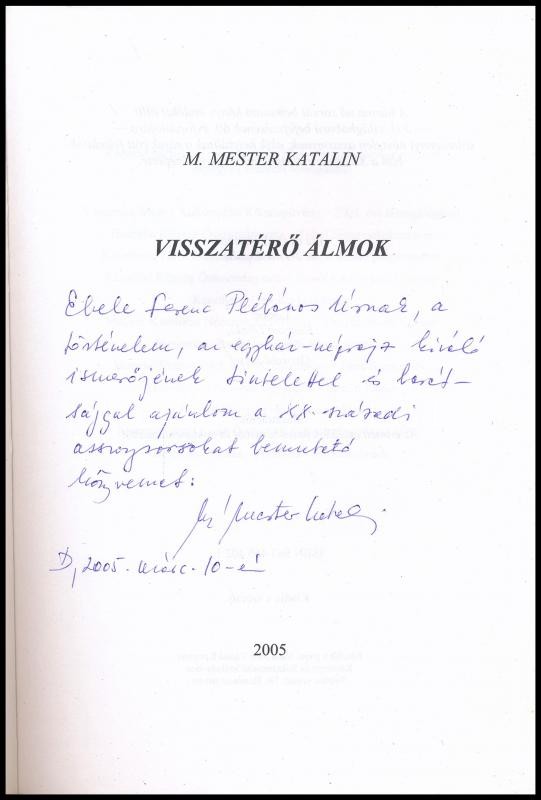 M. MESTER KATALIN
VISSZATÉRŐ ÁLMOK
Ebele Ferenc Plébános Úrnak, a
történelem, az egyház-néprajz kiváló
ismerőjének tisztelettel és barát-
sággal ajánlom a XX. századi
asszonysorsokat bemutató
könyvemet:
Mester Katalin
D, 2005. márc. 10-én
2005